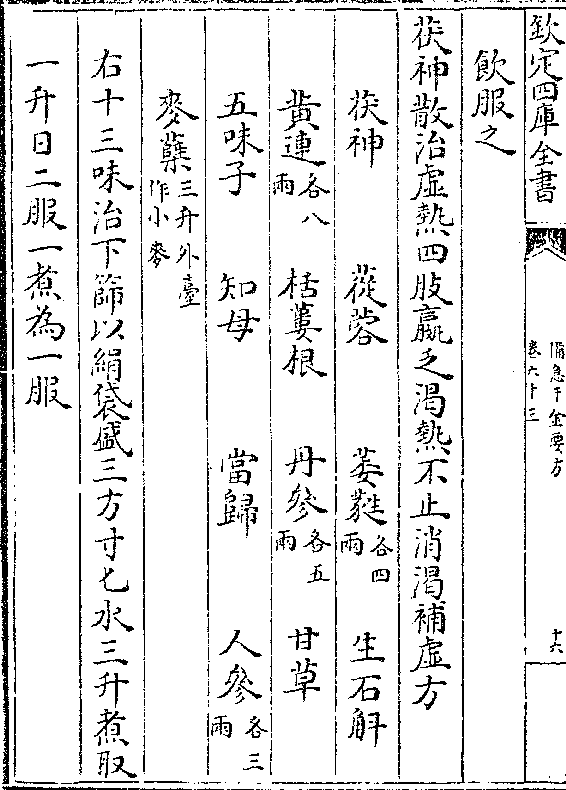 欽定四庫全書
備急千金要方
卷六十三
十六
飲服之
茯神散治虛熱四肢羸乏渴熱不止消渴補虛方
茯神 蓯蓉 萎蕤各四兩 生石斛
黃連各八兩 栝蔞根 丹參各五兩 甘草
五味子 知母 當歸 人參各三兩
麥蘖三升外臺作小麥
右十三味治下篩以絹袋盛三方寸匕水三升煮取
一升日二服一煮為一服